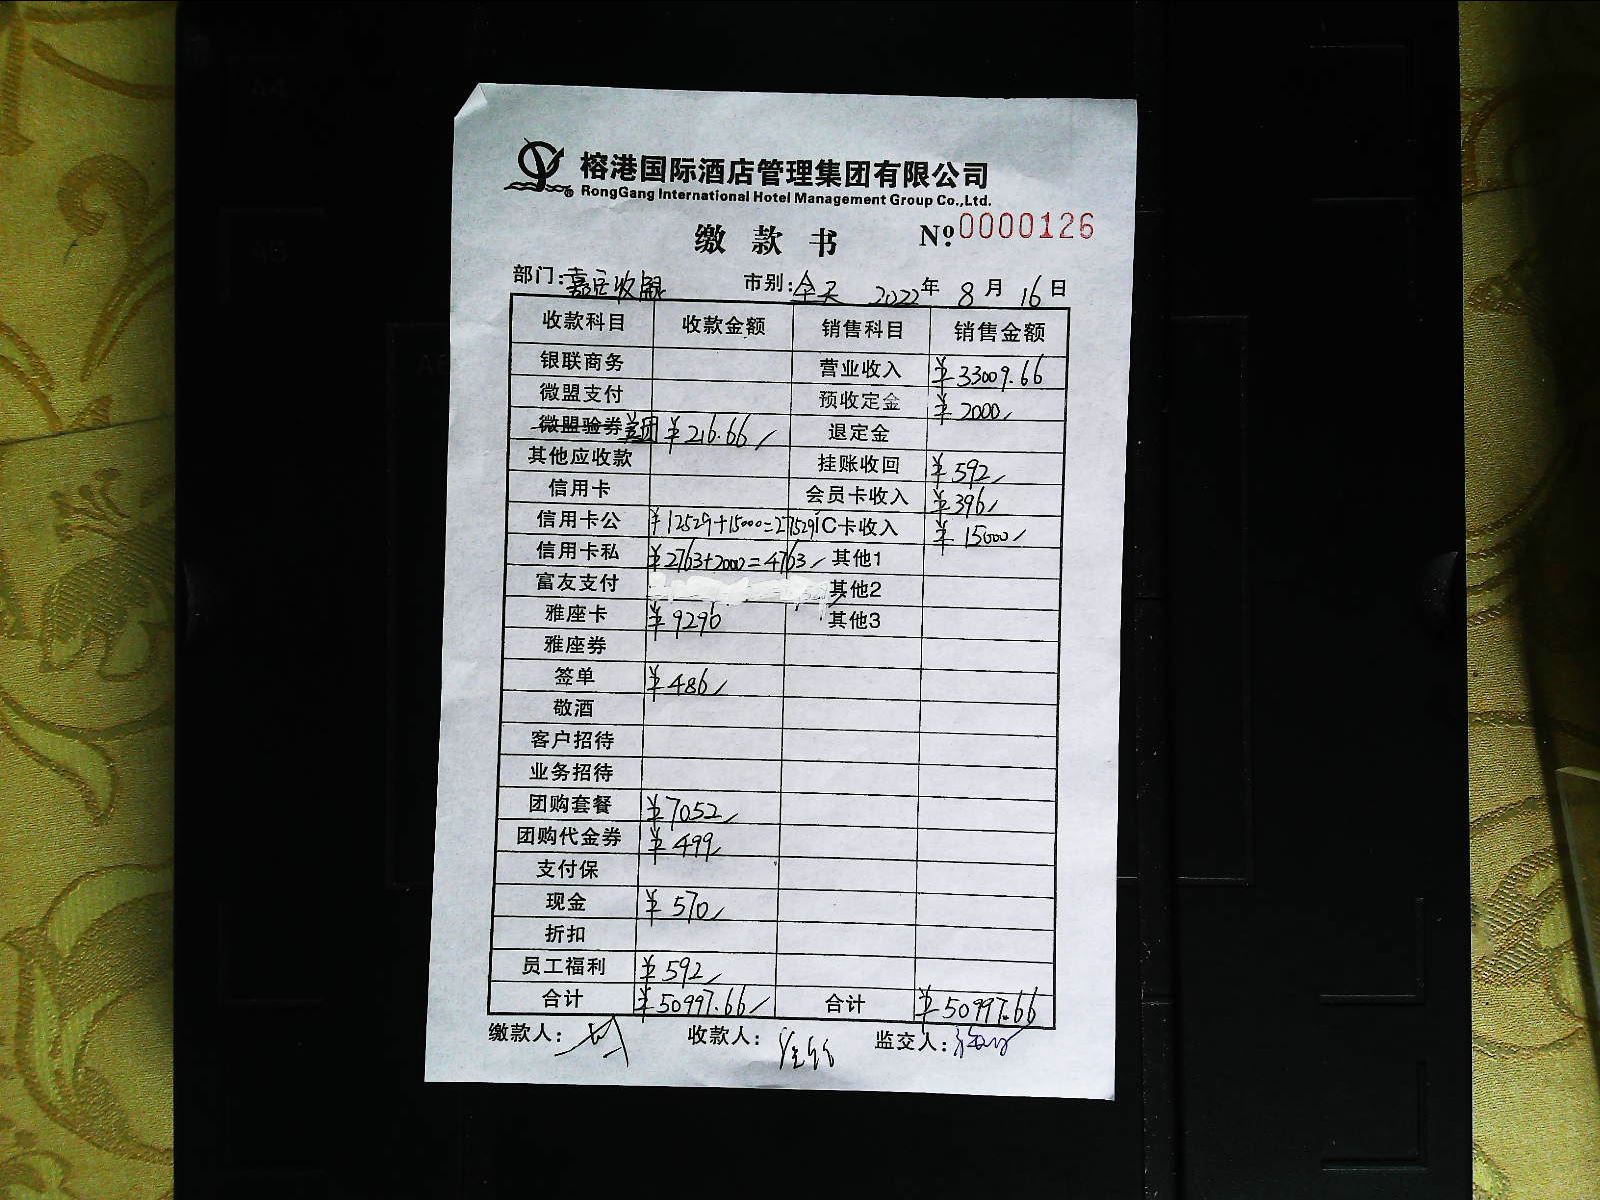 榕港国际酒店管理集团有限公司
RongGang International Hotel Management Group Co.,Ltd.
缴款书 Nº 0000126
部门: 嘉宾收银 市别: 全天 2022年 8月 16日
收款科目 收款金额 销售科目 销售金额
银联商务 营业收入 ¥33009.66
微盟支付 预收定金 ¥2000
微盟验券 美团 ¥216.66 退定金
其他应收款 挂账收回 ¥592
信用卡 会员卡收入 ¥396
信用卡公 ¥12529+15000=27529 IC卡收入 ¥15000
信用卡私 ¥2763+2000=4763 其他1
富友支付 其他2
雅座卡 ¥9290 其他3
雅座券
签单 ¥486
敬酒
客户招待
业务招待
团购套餐 ¥7052
团购代金券 ¥499
支付保
现金 ¥570
折扣
员工福利 ¥592
合计 ¥50997.66 合计 ¥50997.66
缴款人: 收款人: 监交人: